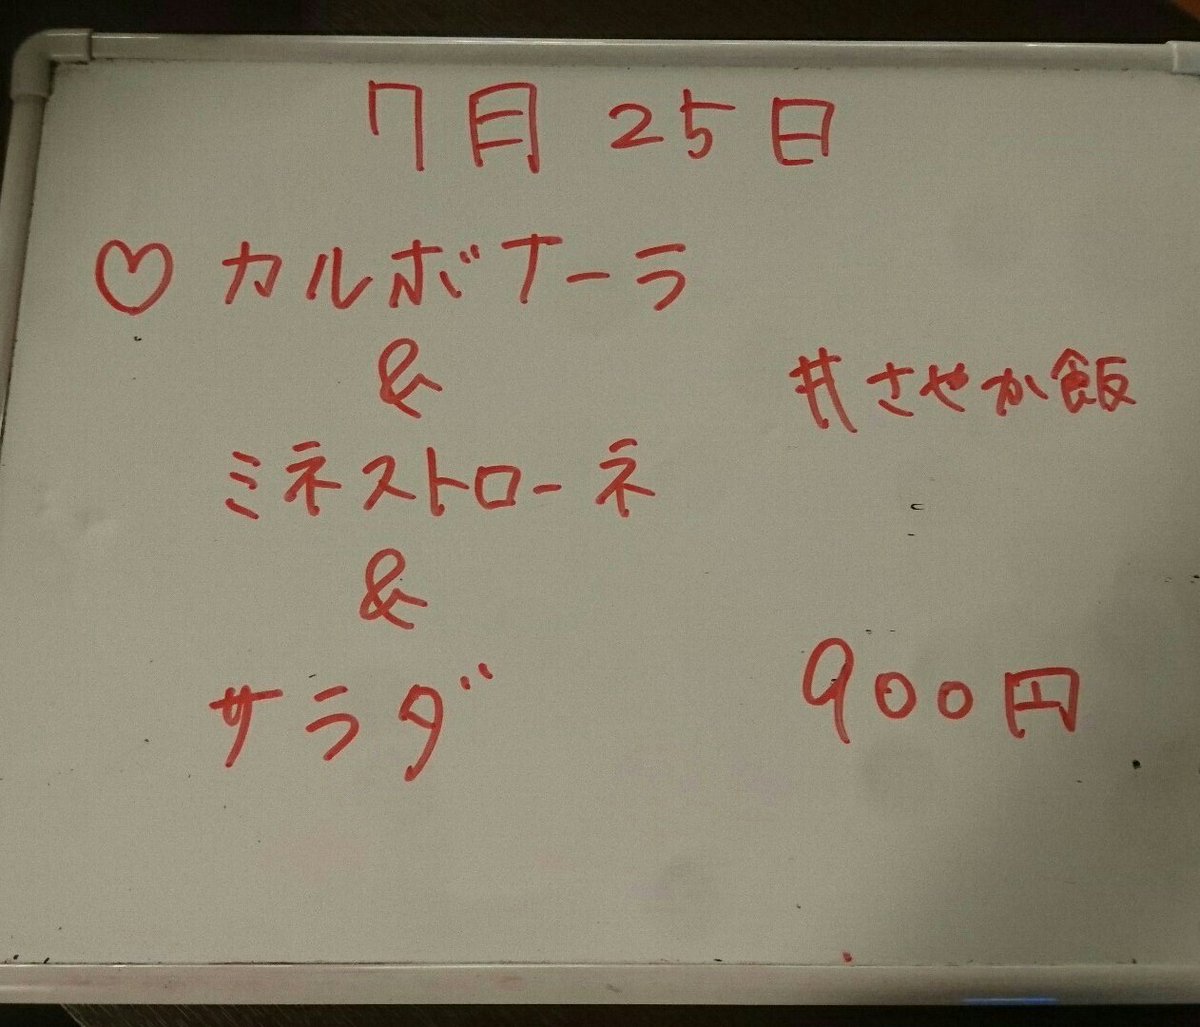 7月25日
♡カルボナーラ
&
#さやか飯
ミネストローネ
&
サラダ
900円